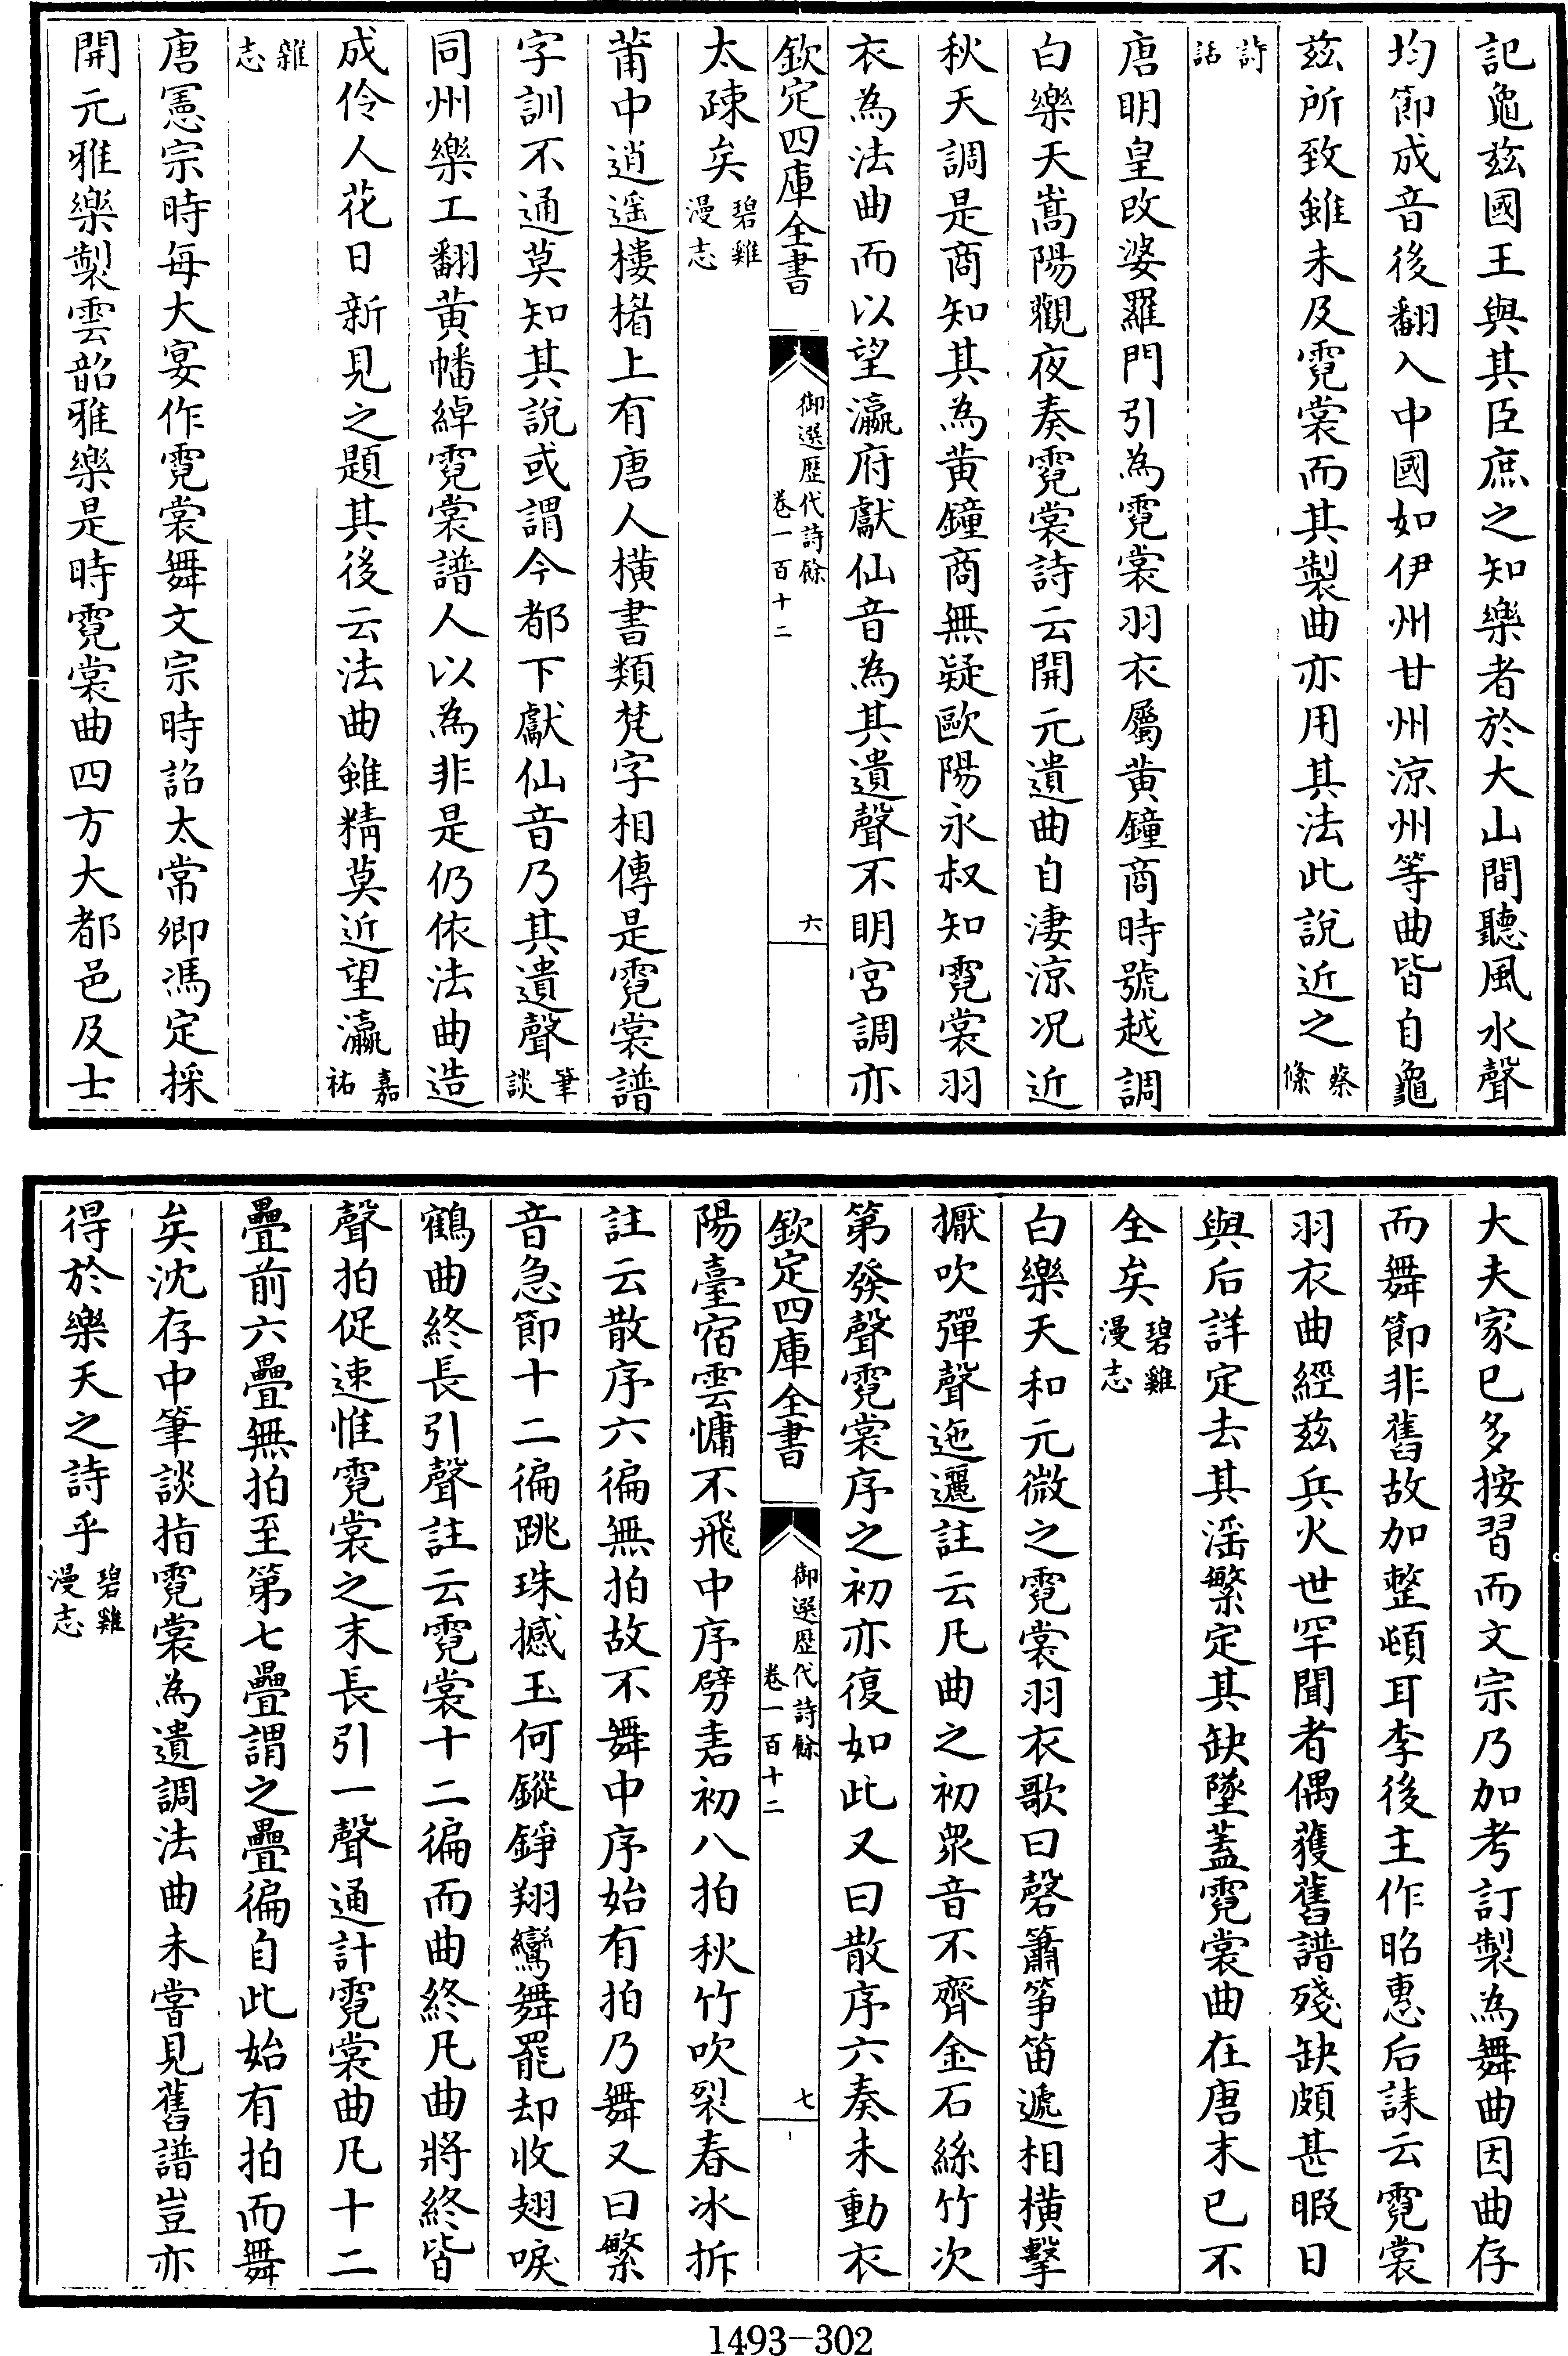 記龜兹國王與其臣庶之知樂者於大山間聽風水聲
均節成音後翻入中國如伊州甘州涼州等曲皆自龜
兹所致雖未及霓裳而其製曲亦用其法此說近之蔡條
詩話
唐明皇改婆羅門引為霓裳羽衣屬黄鐘商時號越調
白樂天嵩陽觀夜奏霓裳詩云開元遺曲自淒涼况近
秋天調是商知其為黄鐘商無疑歐陽永叔知霓裳羽
衣為法曲而以望瀛府獻仙音為其遺聲不明宮調亦
欽定四庫全書 御選歴代詩餘 卷一百十二 六
太疎矣碧雞漫志
莆中逍遥樓楣上有唐人横書類梵字相傳是霓裳譜
字訓不通莫知其說或謂今都下獻仙音乃其遺聲筆談
同州樂工翻黄幡綽霓裳譜人以為非是仍依法曲造
成伶人花日新見之題其後云法曲雖精莫近望瀛嘉祐
雜志
唐憲宗時每大宴作霓裳舞文宗時詔太常卿馮定採
開元雅樂製雲韶雅樂是時霓裳曲四方大都邑及士
大夫家已多按習而文宗乃加考訂製為舞曲因曲存
而舞節非舊故加整頓耳李後主作昭惠后誄云霓裳
羽衣曲經兹兵火世罕聞者偶獲舊譜殘缺頗甚暇日
與后詳定去其滛繁定其缺墜蓋霓裳曲在唐末已不
全矣碧雞漫志
白樂天和元微之霓裳羽衣歌曰磬簫筝笛遞相横擊
擫吹彈聲迤邐註云凡曲之初衆音不齊金石絲竹次
第發聲霓裳序之初亦復如此又曰散序六奏未動衣
欽定四庫全書 御選歴代詩餘 卷一百十二 七
陽臺宿雲慵不飛中序劈砉初八拍秋竹吹裂春冰拆
註云散序六徧無拍故不舞中序始有拍乃舞又曰繁
音急節十二徧跳珠撼玉何鏦錚翔鸞舞罷却收翅唳
鶴曲終長引聲註云霓裳十二徧而曲終凡曲將終皆
聲拍促速惟霓裳之末長引一聲通計霓裳曲凡十二
疊前六疊無拍至第七疊謂之疊徧自此始有拍而舞
矣沈存中筆談指霓裳為遺調法曲未嘗見舊譜豈亦
得於樂天之詩乎碧雞漫志
1493-302